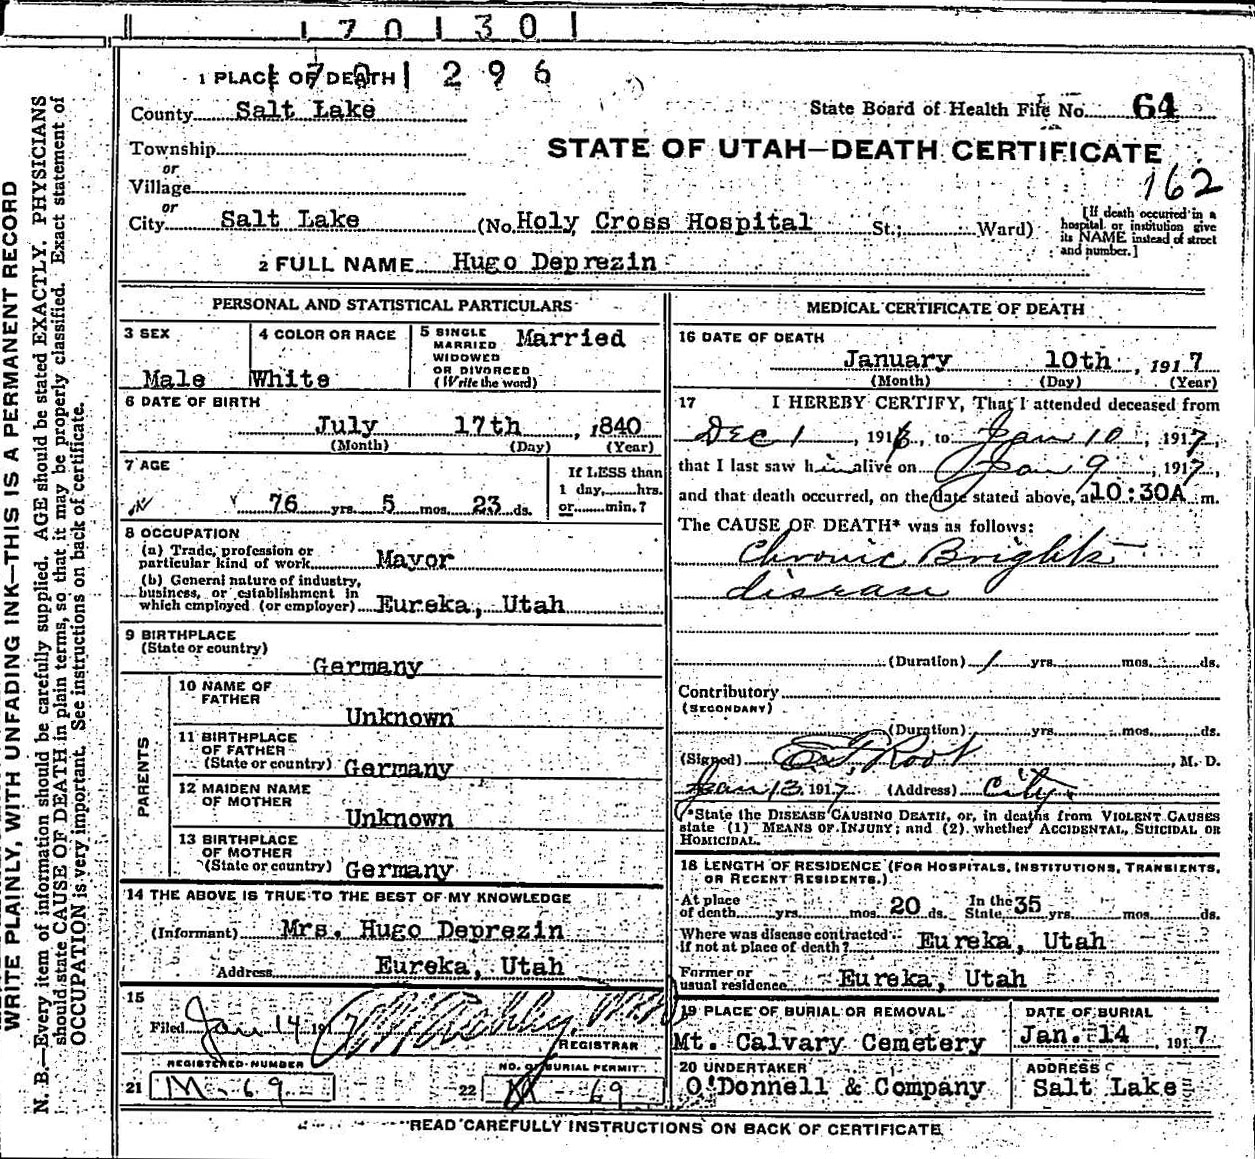 1701301
1 PLACE OF DEATH 1701296
County Salt Lake
State Board of Health File No. 64
Township
or
Village
or
City Salt Lake (No. Holy Cross Hospital St.; Ward)
STATE OF UTAH—DEATH CERTIFICATE
162
[If death occurred in a
hospital or institution give
its NAME instead of street
and number.]
2 FULL NAME Hugo Deprezin
PERSONAL AND STATISTICAL PARTICULARS
3 SEX
Male
4 COLOR OR RACE
White
5 SINGLE
MARRIED
WIDOWED
OR DIVORCED
(Write the word)
Married
6 DATE OF BIRTH
July 17th, 1840
(Month) (Day) (Year)
7 AGE
76 yrs. 5 mos. 23 ds.
If LESS than
1 day, hrs.
or min.?
8 OCCUPATION
(a) Trade, profession or
particular kind of work Mayor
(b) General nature of industry,
business, or establishment in
which employed (or employer) Eureka, Utah
9 BIRTHPLACE
(State or country)
Germany
PARENTS
10 NAME OF
FATHER
Unknown
11 BIRTHPLACE
OF FATHER
(State or country) Germany
12 MAIDEN NAME
OF MOTHER
Unknown
13 BIRTHPLACE
OF MOTHER
(State or country) Germany
14 THE ABOVE IS TRUE TO THE BEST OF MY KNOWLEDGE
(Informant) Mrs. Hugo Deprezin
Address Eureka, Utah
15
Filed Jan 14 1917
REGISTRAR
REGISTERED NUMBER
21 M-69
NO. OF BURIAL PERMIT
22 M-69
MEDICAL CERTIFICATE OF DEATH
16 DATE OF DEATH
January 10th, 1917
(Month) (Day) (Year)
17 I HEREBY CERTIFY, That I attended deceased from
Dec 1, 1916, to Jan 10, 1917,
that I last saw him alive on Jan 9, 1917,
and that death occurred, on the date stated above, at 10:30A m.
The CAUSE OF DEATH* was as follows:
Chronic Brights
disease
(Duration) 1 yrs. mos. ds.
Contributory
(SECONDARY)
(Duration) yrs. mos. ds.
(Signed) E F Root, M. D.
Jan 13, 1917 (Address) City
*State the DISEASE CAUSING DEATH, or, in deaths from VIOLENT CAUSES
state (1) MEANS OF INJURY; and (2) whether ACCIDENTAL, SUICIDAL OR
HOMICIDAL.
18 LENGTH OF RESIDENCE (FOR HOSPITALS, INSTITUTIONS, TRANSIENTS,
OR RECENT RESIDENTS.)
At place
of death yrs. mos. 20 ds. In the
State 35 yrs. mos. ds.
Where was disease contracted
if not at place of death? Eureka, Utah
Former or
usual residence Eureka, Utah
19 PLACE OF BURIAL OR REMOVAL
Mt. Calvary Cemetery
DATE OF BURIAL
Jan. 14 1917
20 UNDERTAKER
O'Donnell & Company
ADDRESS
Salt Lake
READ CAREFULLY INSTRUCTIONS ON BACK OF CERTIFICATE
WRITE PLAINLY, WITH UNFADING INK—THIS IS A PERMANENT RECORD
N. B.—Every item of information should be carefully supplied. AGE should be stated EXACTLY. PHYSICIANS
should state CAUSE OF DEATH in plain terms, so that it may be properly classified. Exact statement of
OCCUPATION is very important. See instructions on back of certificate.